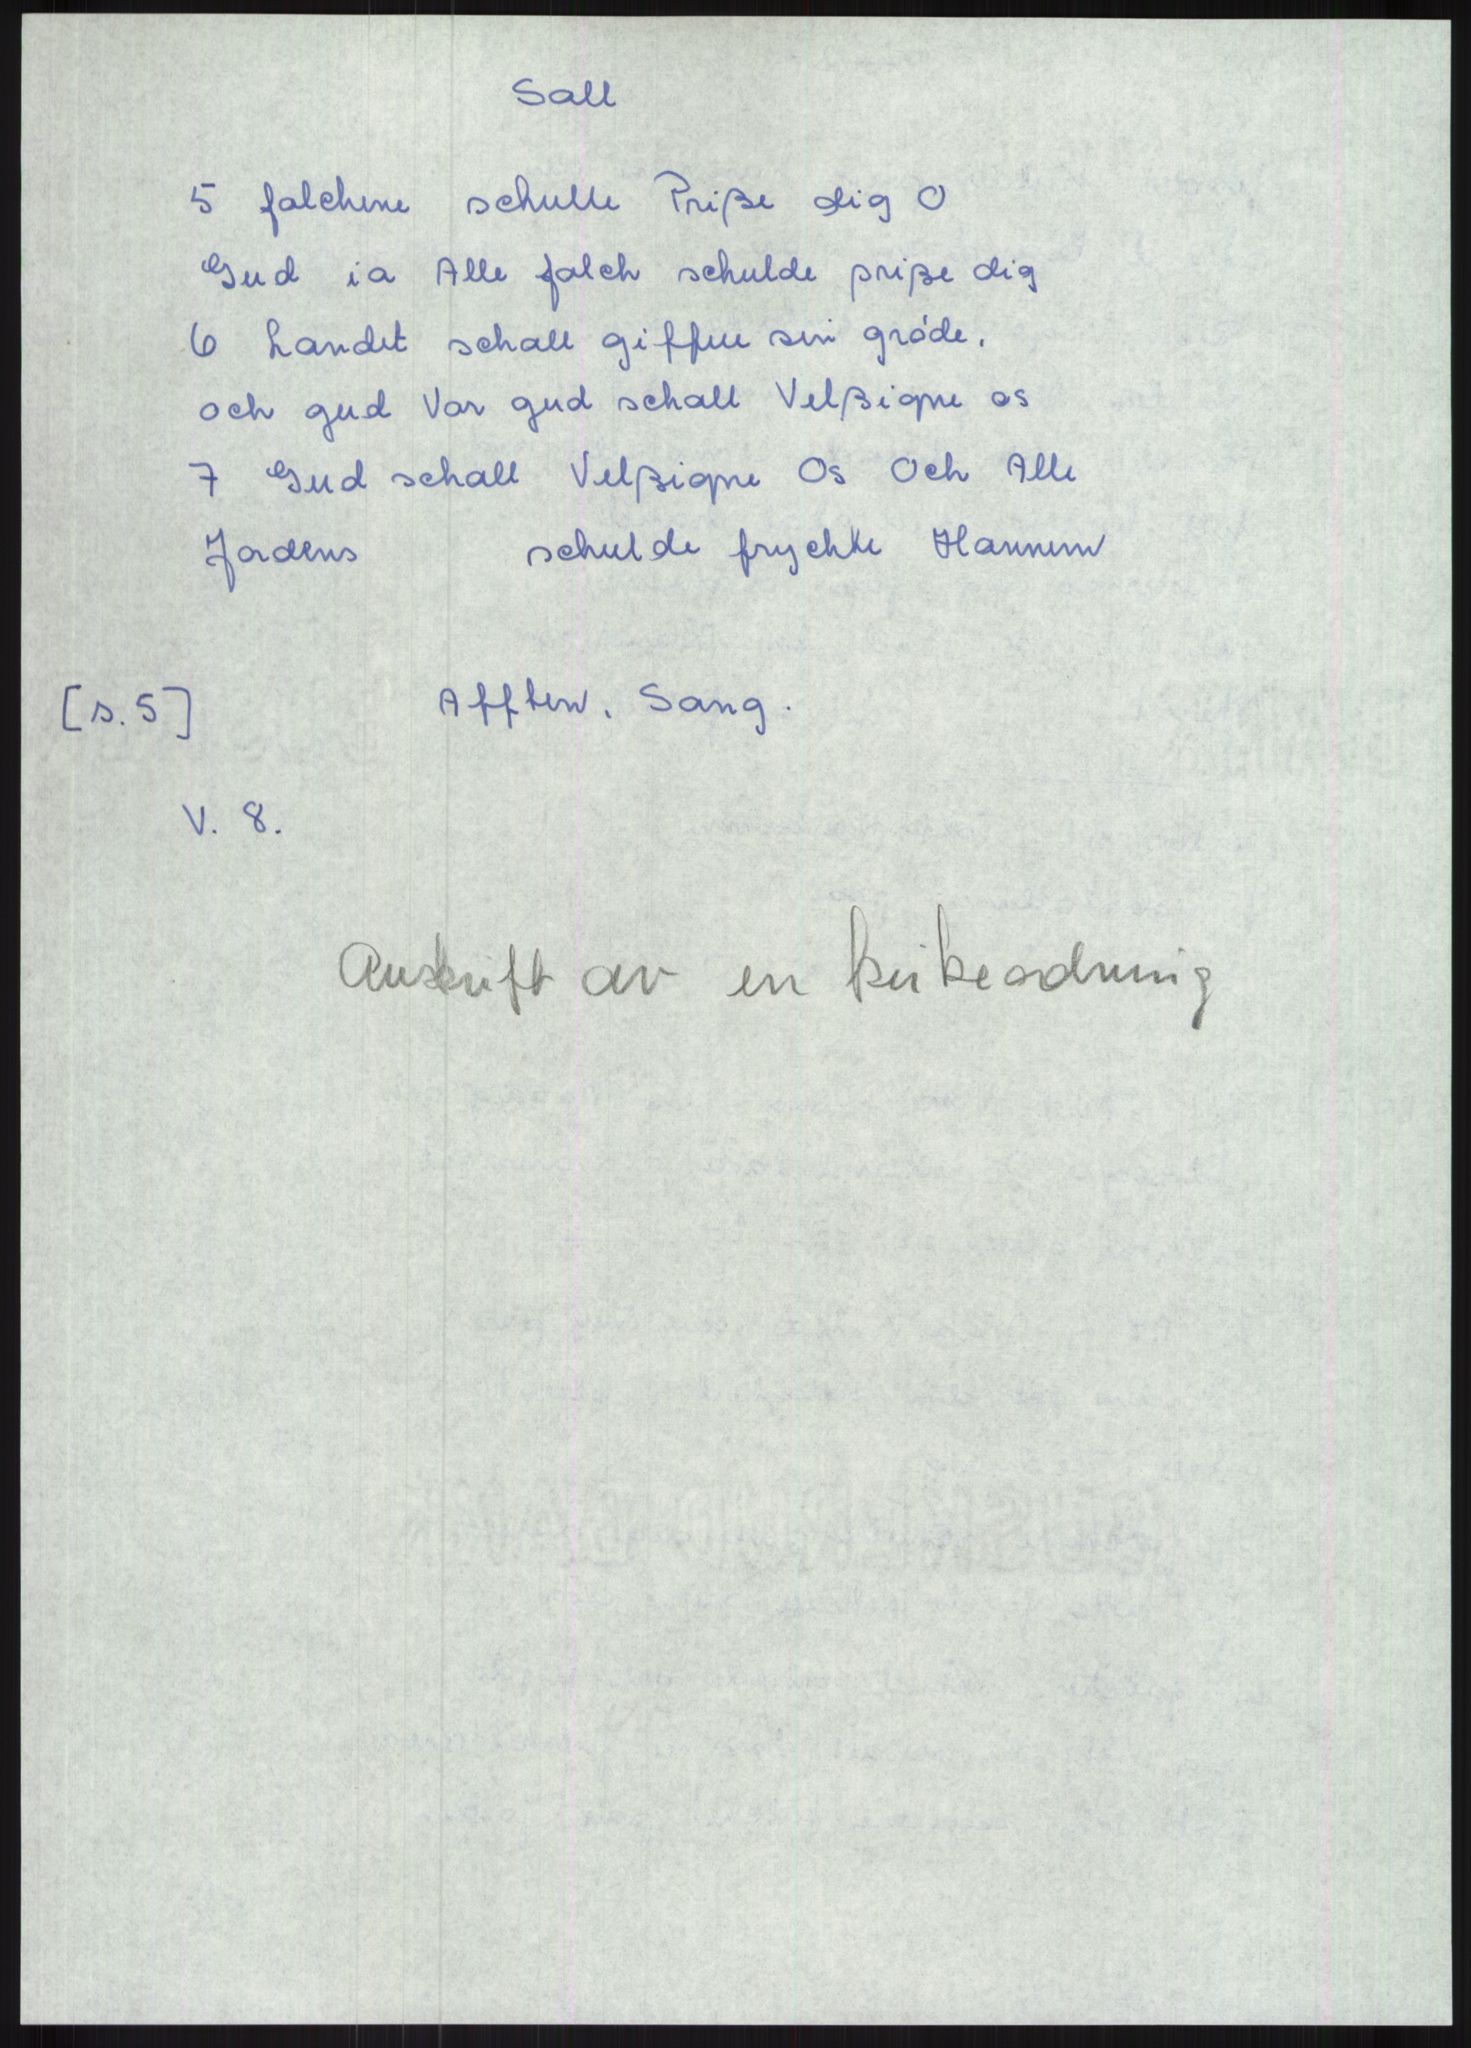 Sall
5 folchene schulle Priße dig O
Gud ia Alle folch schulde priße dig
6 Landet schall giffue sin gróde.
och gud Vor gud schall Velßigne os
7 Gud schall Velßigne Os Och Alle
Jordens schulde frychte Hannem
[s. 5] Afften. Sang.
V. 8.
Auskrift av en kirkeordning